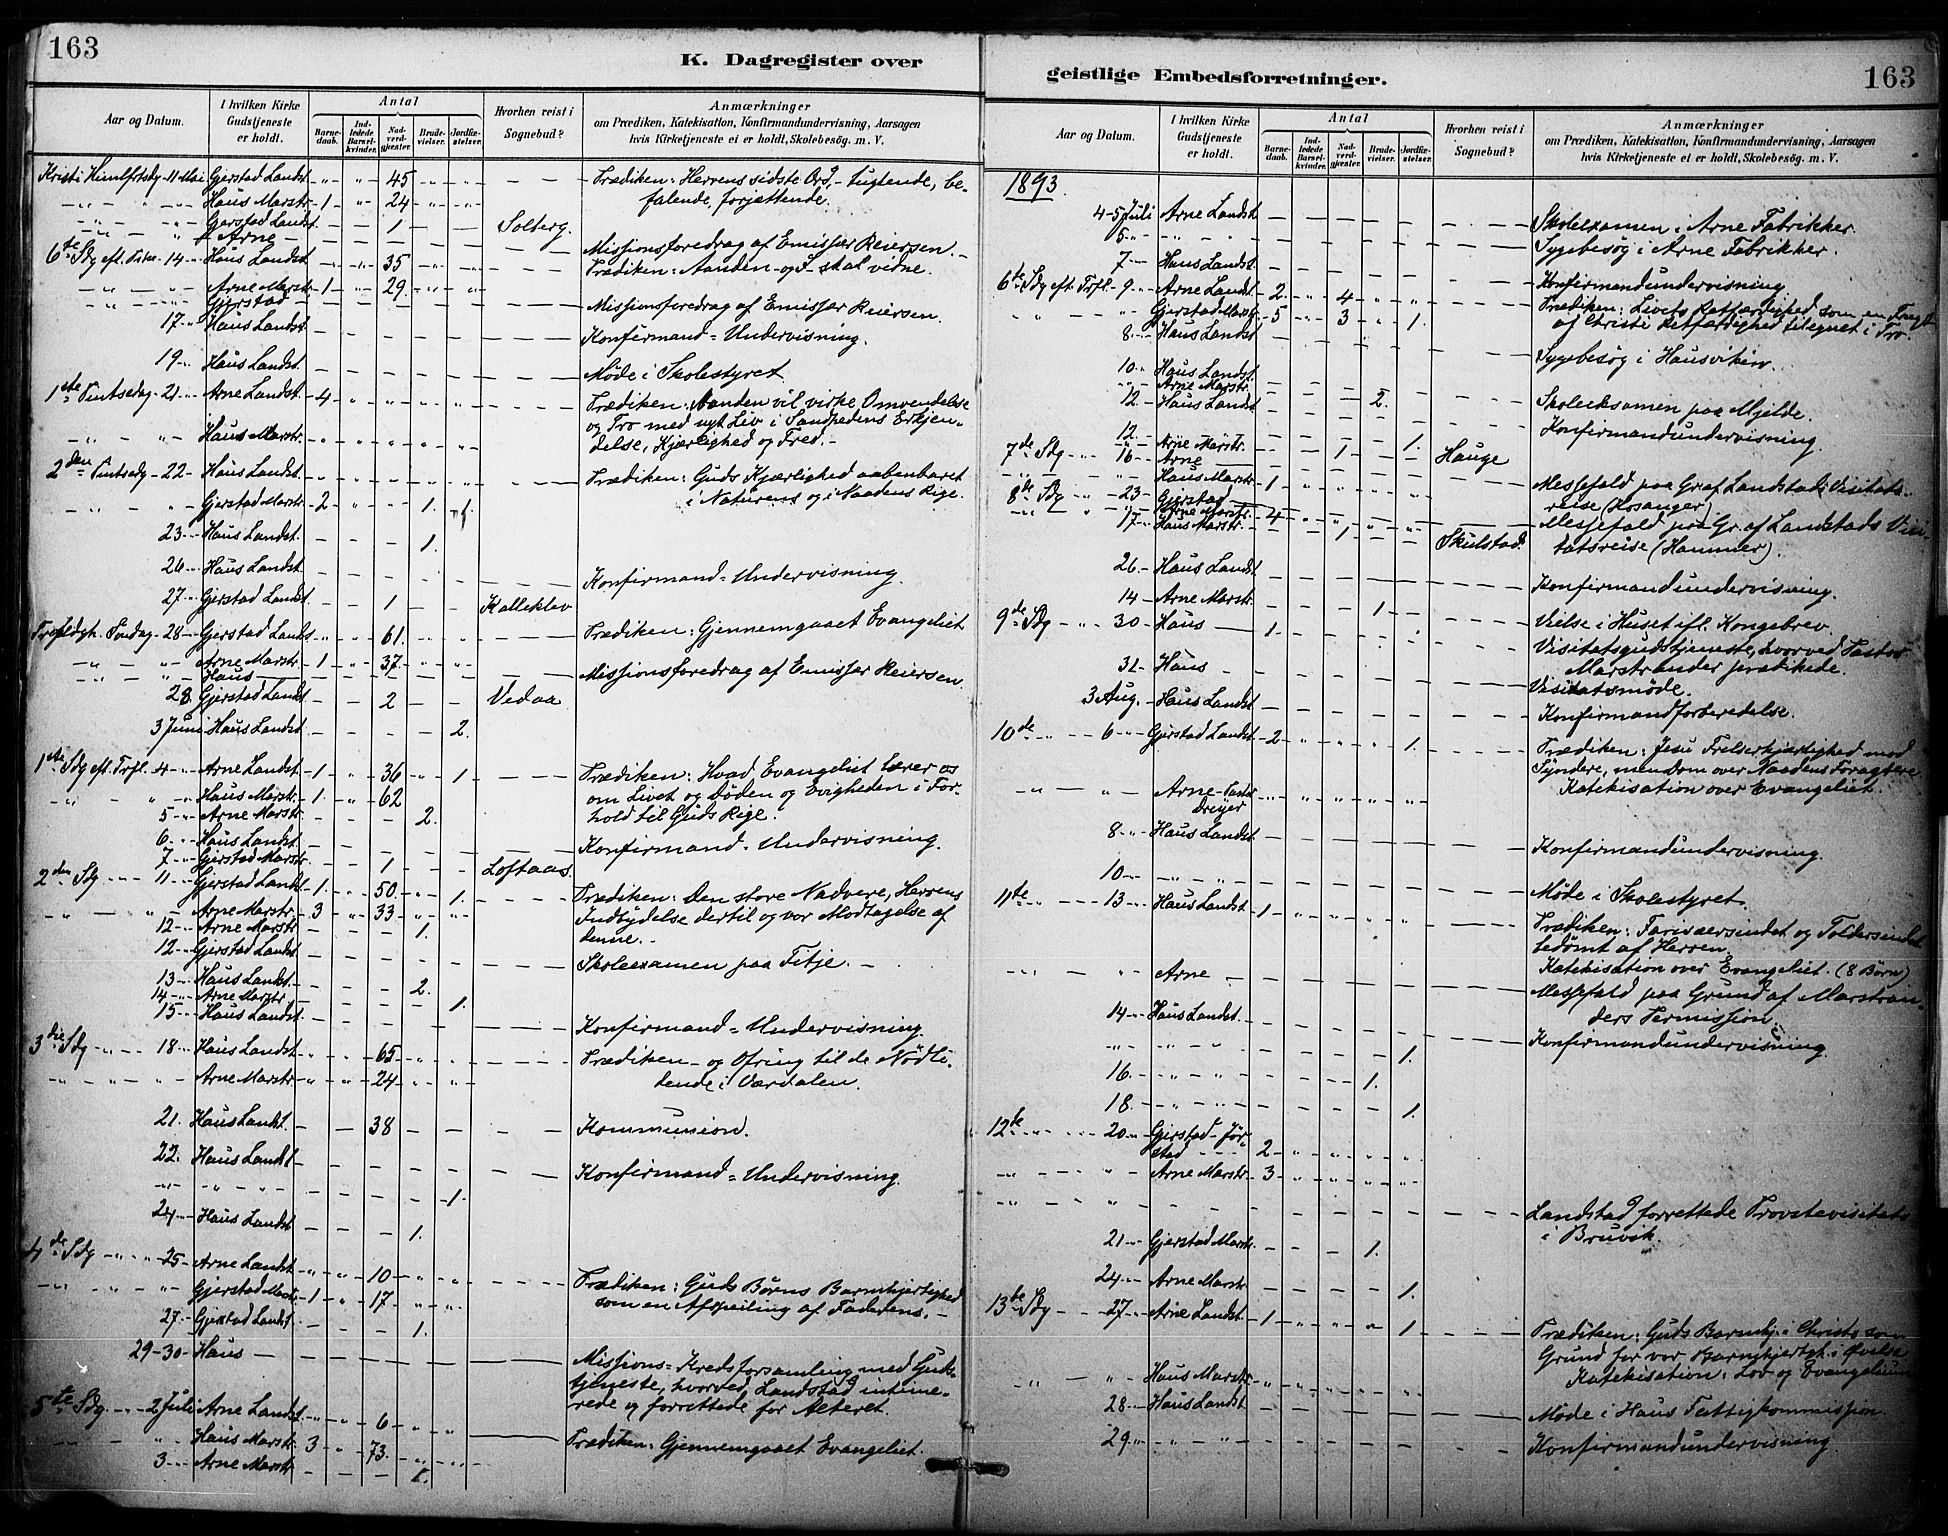 163
K. Dagregister over
Aar og Datum. I hvilken Kirke Gudstjeneste er holdt. Antal Barnedaab. Indledede Barselkvinder. Nadverdgjester. Brudevielser. Jordfæstelser. Hvorhen reist i Sognebud? Anmærkninger om Prædiken, Katekisation, Konfirmandundervisning, Aarsagen hvis Kirketjeneste ei er holdt, Skolebesög. m. V.
Kristi Himlfrtsdg 11 Mai Gjerstad Landst. " " 45 " " — — Prædiken: Herrens sidste Ord, - tugtende, be-
— " — " — " Haus Marstr. 1 " 24 " " falende, forjættende.
— " — " — " Gjerstad Landst — — 1 — — Solberg.
" Arne — Missionsforedrag af Emissær Reiersen. —
6te Sdg eft. Paaske 14 Haus Landst " " 35 " " — — Prædiken: Aanden og I skal vidne.
— " — " Arne Marstr. 1 " 29 " "
— " — " Gjerstad — Missionsforedrag af Emissær Reiersen.
17 " Haus Landst. — — — — — Konfirmand = Undervisning.
19 " Haus Landst. — — — — — Møde i Skolestyret.
1ste Pintsedag 21 Arne Landst. 4 " " " " — — Prædiken: Aanden vil virke Omvendelse
og Tro med nyt Liv i Sandhedens Erkjen-
— " — " Haus Marstr. " " " " " delse, Kjærlighed og Fred. —
2den Pintsedg 22 Haus Landst. " " " " " — — Prædiken: Guds Kjærlighed aabenbaret
— " — " Gjerstad Marstr. 2 " " 1. 1. i Naturens og i Naadens Rige.
23 Haus Landst. — — — 1.
26 Haus Landst — — — — — Konfirmand = Undervisning.
27 Gjerstad Landst. — — 1 — — Kalleklev
Trefldgh. Søndag 28 Gjerstad Landst " " 61. " " — — Prædiken: Gjennemgaaet Evangeliet
— " — " Arne Marstr. 1 " 37 " "
— " — " Haus — Missionsforedrag af Emissær Reiersen.
28 Gjerstad Landst — — 2 — — Vedaa
3 Juni Haus Landst. — — — — 2.
1ste Sdg eft. Trfl. 4 Arne Landst. 1 " 36 " 1 — — Prædiken: Hvad Evangeliet lærer os
" — " Haus Marstr. 1. " 62 om Livet og Døden og Evigheden i For-
5 " Arne Marstr. — — — 2. hold til Guds Rige.
6 " Haus Landst. — — — — — Konfirmand = Undervisning.
7 " Gjerstad Marstr. — — 1 — — Loftaas.
2den Sdg " 11 Gjerstad Landst. 1. " 50. " 1. — — Prædiken: Den store Nadvere, Herrens
" — " Arne Marstr. 3 " 33 " " Indbydelse dertil og vor Modtagelse af
12 Arne Marstr — — — 1. denne. —
12 Gjerstad Landst — — — — — Skoleexamen paa Fitje. —
13 Haus Landst. — — — 2.
14 Arne Marstr. — — — — 1.
15 Haus Landst. — — — — — Konfirmand = Undervisning.
3die Sdg " 18 Haus Landst. " " 65 " " — — Prædiken - og Ofring til de Nødli-
— " — " Arne Marstr. " " 24 " " dende i Værdalen.
21. Haus Landst. — — 38 — — — — Kommunion.
22. Haus Landst — — — — — Konfirmand = Undervisning.
— " — " — " — — — — 1.
24 Haus Landst — — — 1.
4de Sdg " 25 Arne Landst " " 10 " " — — Prædiken: Guds Børns Barmhjertighed
" — " Gjerstad Marstr. 1 " 17 " " som en Afspeiling af Faderens. —
27 Gjerstad Landst. — — — 1.
29-30 Haus — Missions = Kredsforsamling med Guds-
tjeneste, hvorved Landstad intime-
5te Sdg " 2 Juli Arne Landst. " " 6 " " rede og forrettede for Alteret.
" Haus Marstr. 3 " 73. " " Prædiken: Gjennemgaaet Evangeliet.
3 " Arne Marstr. — — — 1.
163
geistlige Embedsforretninger.
Aar og Datum. I hvilken Kirke Gudstjeneste er holdt. Antal Barnedaab. Indledede Barselkvinder. Nadverdgjester. Brudevielser. Jordfæstelser. Hvorhen reist i Sognebud? Anmærkninger om Prædiken, Katekisation, Konfirmandundervisning, Aarsagen hvis Kirketjeneste ei er holdt, Skolebesög. m. V.
1893.
4-5 Juli Arne Landst. — — — — — Skoleexamen i Arne Fabrikker.
5 " " " — — — — — Sygebesøg i Arne Fabrikker.
7 " Haus Landst. — — — — — Konfirmandundervisning
6te Sdg eft. Trfl. 9 Arne Landst. 2. " 4 " " — — Prædiken: Livets Retfærdighed som en Frugt
" — " Gjerstad Marstr. 5 " 3 " 1. af Christi Retfærdighed tilegnet i Tro.
8 " Haus Landst — — — — — Sygebesøg i Hausviken.
10 " Haus Landst.
" Arne Marstr. — — — 2.
12. Haus Landst — — — — — Skoleeksamen paa Mjelde.
12. — Konfirmandundervisning
" Arne Marstr. — — — — 1.
7de Sdg " 16 Arne — — — 1 — — Hauge
" Haus Marstr. 1 " " " " Messefald paa Gr. af Landstads Visitats-
8de Sdg " 23 Gjerstad — reise (Hosanger)
" Arne Marstr. 4 " " " " Messefald paa Gr. af Landstads Visi-
17 " Haus Marstr. — — 1 — — Skulstad. tatsreise (Hammer).
26 Haus Landst — — — — — Konfirmandundervisning.
14 Arne Marstr. — — — 1 — Vielse i Huset ifl. Kongebrev.
9de Sdg " 30 Haus — 1. Visitatsgudstjeneste, hvorved Pastor
Marstrander prædikede.
31 Haus — Visitatsmøde.
3 Aug. Haus Landst. — — — — — Konfirmandforberedelse.
10de " 6 Gjerstad Landst. 2 " " " 1. Prædiken: Jesu Frelserkjærlighed mod
Syndere, men Dom over Naadens Foragtere.
" — " Arne - Pastor Dreyer " " " " " Katekisation over Evangeliet.
8 " Haus Landst — — — — — Konfirmandundervisning.
10 " " " — — — — — Møde i Skolestyret.
11te " 13 Haus Landst. 1 " " " " Prædiken: Farisæersindet og Toldersindet
bedømt af Herren
Katekisation over Evangeliet. (8 Børn)
" — " Arne — Messefald paa Grund af Marstran-
ders Permission
14 Haus Landst. — — — — — Konfirmandundervisning.
" " " — — — — 1.
16 " " " — — — 1.
18 " " " — — — — 1.
12te " 20 Gjerstad - Jør-
stad — 2 " " " "
" — " Arne Marstr. 3 " " " "
" — " Landstad forrettede Provstevisitats
i Bruvik.
21 Gjerstad Marstr. — — — 1.
24 Arne Marstr. — — — — 1.
13te Sdg 27 Arne Landst. 1 " " " 1. Prædiken: Guds Barmhj. i Christo som
Grund for vor Barmhjertgh. i Øvelse
" — " Haus Marstr. " " " " " Katekisation: Lov og Evangelium
28 Haus Landst. — — — — — Møde i Haus Fattigkommission.
29 " " " — — — — — Konfirmandundervisning.